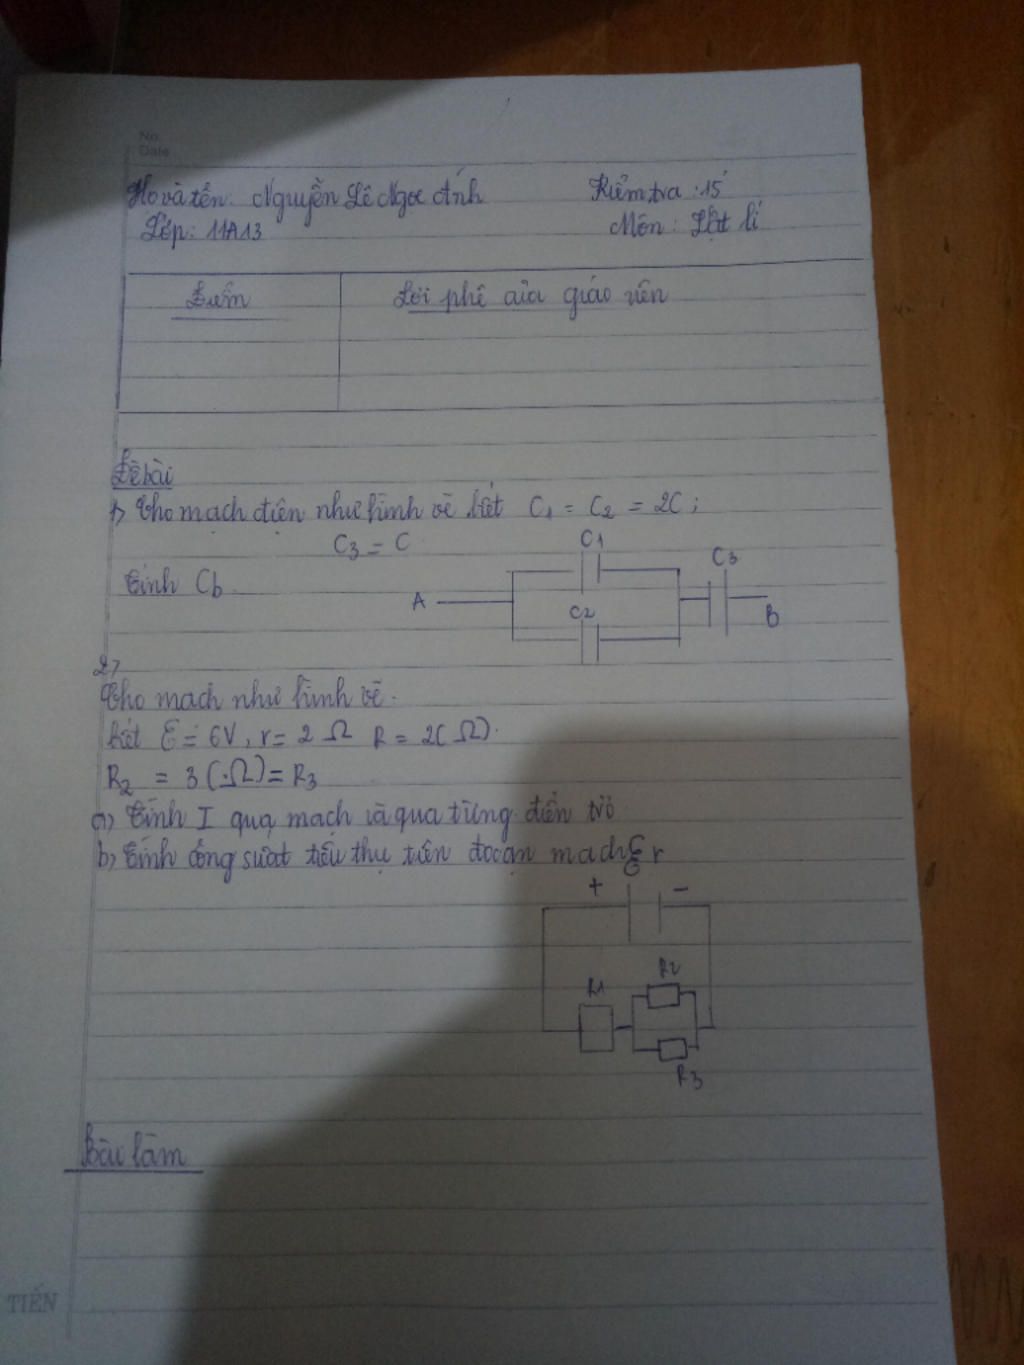 No.
Date
Họ và tên: Nguyễn Lê Ngọc Ánh
Kiểm tra: 15'
Lớp: 11A13
Môn: Vật lí
Điểm
Lời phê của giáo viên
Đề bài
1) Cho mạch điện như hình vẽ biết C1 = C2 = 2C;
C3 = C
Tính Cb
C1
C3
A
C2
B
2)
Cho mạch như hình vẽ.
biết E = 6V, r = 2 Ω R = 2(Ω).
R2 = 3(Ω) = R3
a) Tính I qua mạch và qua từng điện trở
b) Tính công suất tiêu thụ trên đoạn mạch
E r
+ -
R1
R2
R3
Bài làm
TIẾN